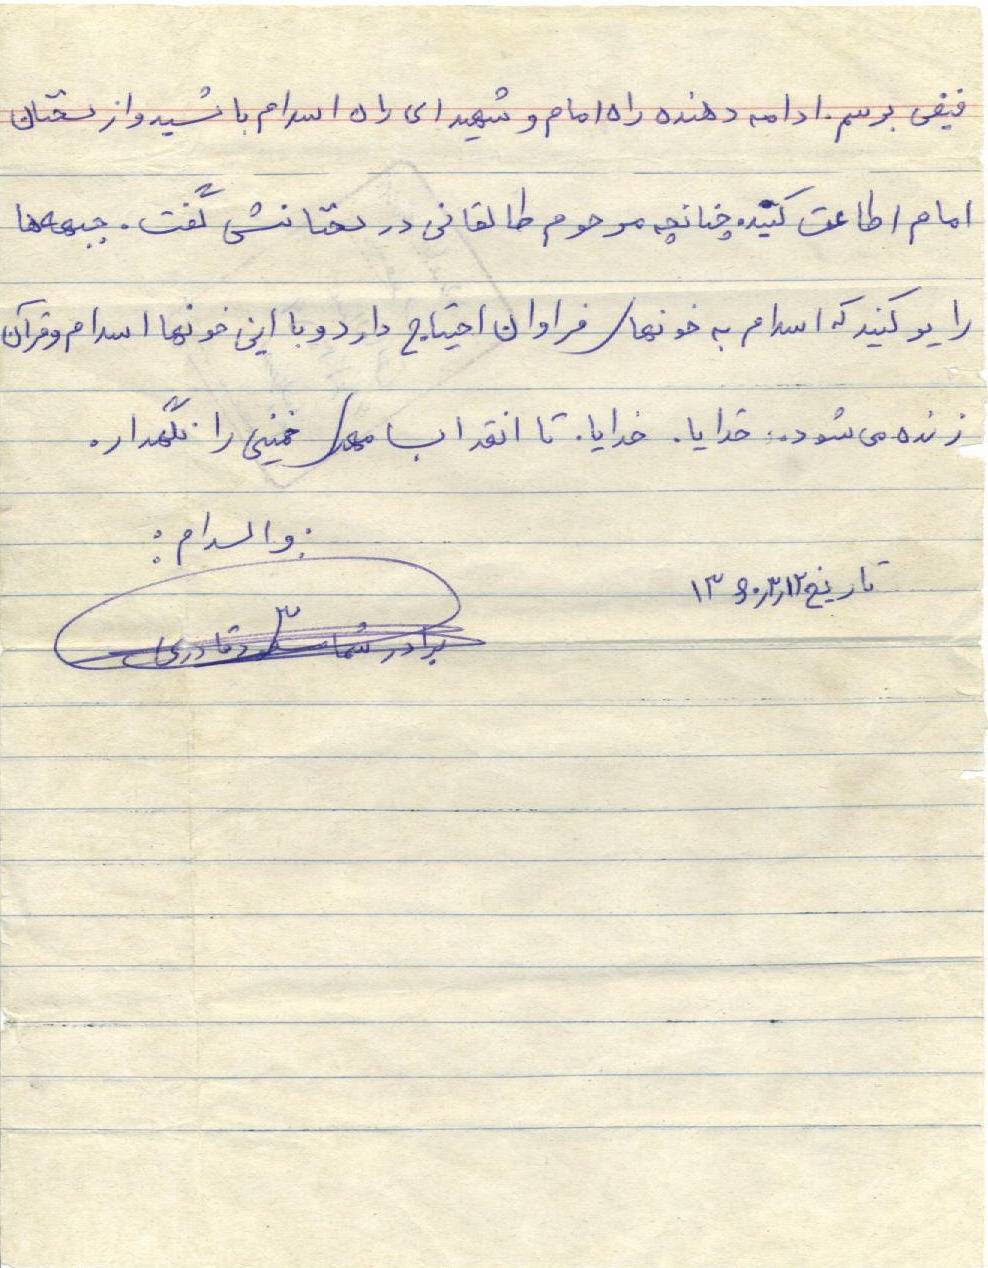 فیفی برسم. ادامه دهنده راه امام و شهیدای راه اسلام باشید و از سخنان
امام اطاعت کنید. چنانچه مرحوم طالقانی در سخنانش گفت. جبهه‌ها
را پر کنید که اسلام به خونهای فراوان احتیاج دارد و با این خونها اسلام و قرآن
زنده می‌شود. خدایا. خدایا. تا انقلاب مهدی خمینی را نگهدار.
والسلام:
تاریخ ۱۳۶۰٫۳٫۱۲
برادر شما قادری